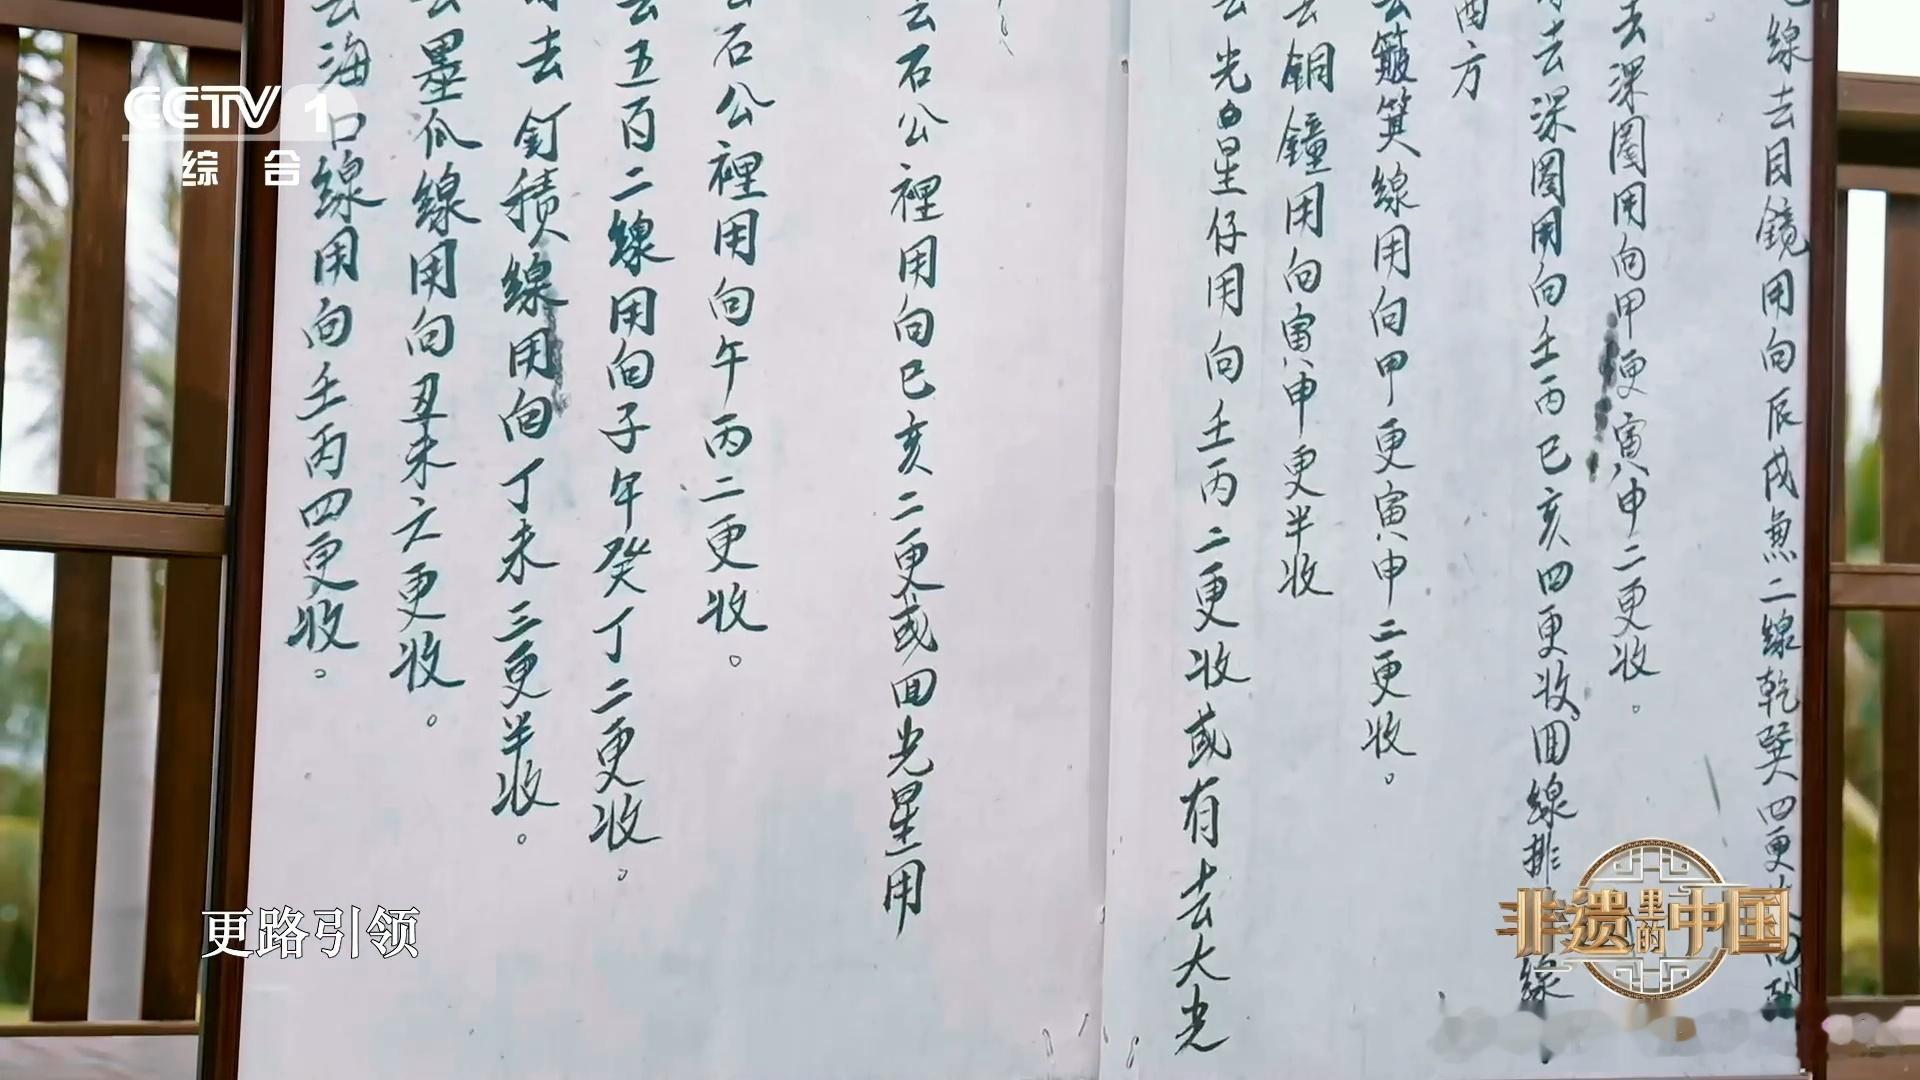 線去目鏡用向辰戌兼二線乾巽四更
去深圈用向甲更寅申二更收。
去深圈用向壬丙巳亥四更收回線排
線
酉方
去簸箕線用向甲更寅申二更收。
去銅鐘用向寅申更半收
去光星仔用向壬丙二更收或有去大光
去石公裡用向巳亥二更或回光星用
石公裡用向午丙二更收。
去五百二線用向子午癸丁二更收。
去釘積線用向丁未三更半收。
去墨瓜線用向丑未六更收。
去海口線用向壬丙四更收。
CCTV 1
综合
更路引领
非遗里的中国